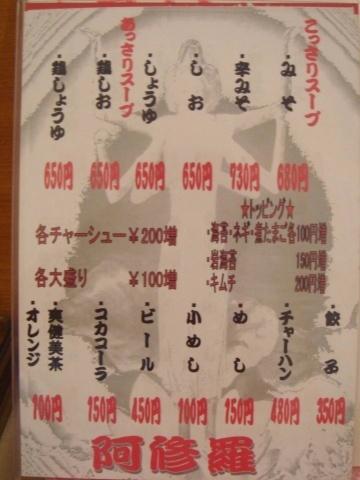 こっさりスープ
・みそ 680円
・辛みそ 730円
・しお 650円
・しょうゆ 650円
あっさりスープ
・鶏しお 650円
・鶏しょうゆ 650円
☆トッピング☆
・海苔・ネギ・煮たまご各100円増
・岩海苔 150円増
・キムチ 200円増
各チャーシュー ¥200増
各大盛り ¥100増
・餃子 350円
・チャーハン 480円
・めし 150円
・小めし 100円
・ビール 450円
・コカコーラ 150円
・爽健美茶
・オレンジ 100円
阿修羅